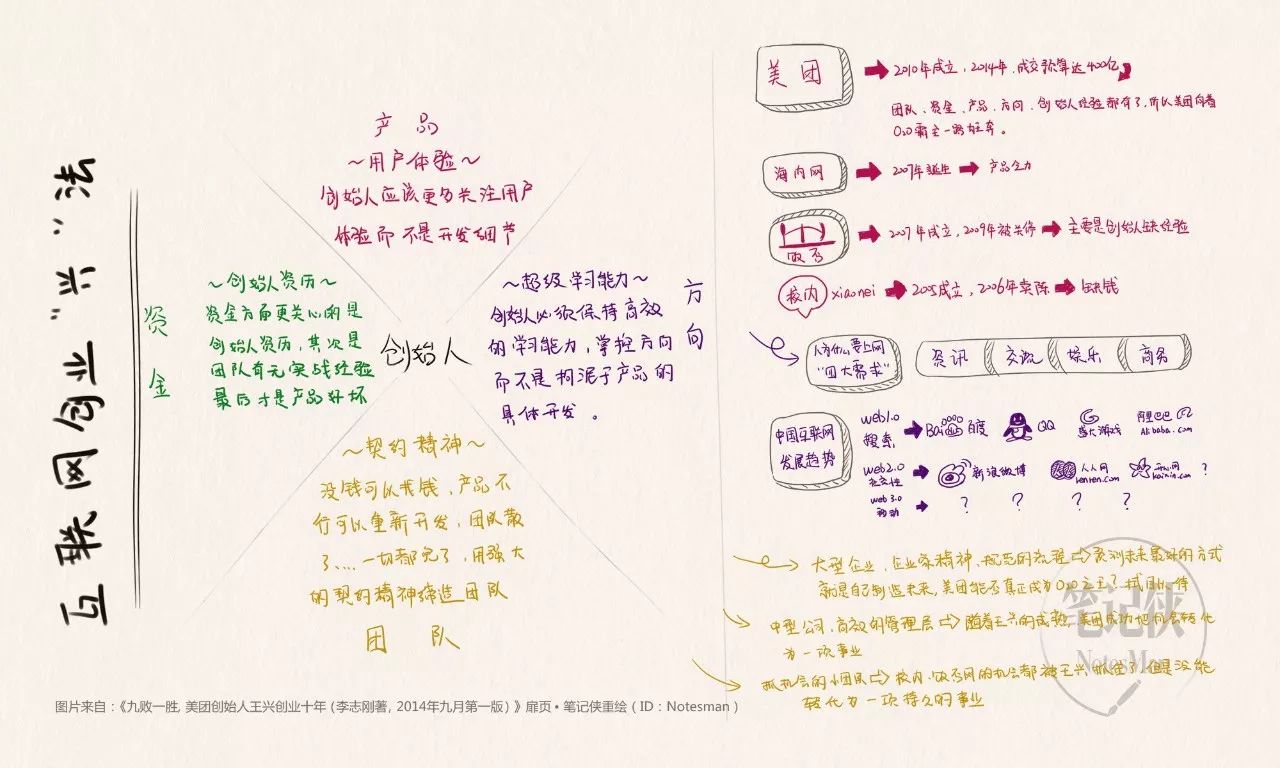 互联网创业“兴”法
产品
~用户体验~
创始人应该更多关注用户
体验而不是开发细节
资金
~创始人资历~
资金方面更关心的是
创始人资历，其次是
团队有无实战经验
最后才是产品好坏
创始人
~超级学习能力~
创始人必须保持高效
的学习能力，掌控方向
而不是拘泥于产品的
具体开发。
方向
~契约精神~
没钱可以找钱，产品不
行可以重新开发，团队散
了....一切都完了，用强大
的契约精神缔造团队
团队
美团
2010年成立，2014年，成交预算达400亿
团队、资金、产品、方向、创始人经验都有了，所以美团向着
O2O霸主一路狂奔。
海内网
2007年诞生
产品乏力
饭否
2007年成立，2009年被关停
主要是创始人缺经验
校内
xiaonei
2005成立，2006年卖除
缺钱
人为什么要上网
“四大需求”
资讯
交流
娱乐
商务
中国互联网
发展趋势
web1.0
搜索
Bai 百度
QQ
盛大游戏
阿里巴巴
Alibaba.com
web2.0
社交性
新浪微博
人人网
renren.com
开心网
kaixin.com
?
web 3.0
移动
? ? ? ?
大型企业、企业家精神、规范的流程 预测未来最好的方式
就是自己制造未来，美团能否真正成为O2O之王？拭目以待
中型公司、高效的管理层 随着王兴的成熟，美团成功也会转化
为一项事业
抓机会的小团队 校内、饭否网的机会都被王兴抓住了，但是没能
转化为一项持久的事业
笔记侠
NotesMan
图片来自：《九败一胜, 美团创始人王兴创业十年（李志刚著, 2014年九月第一版）》扉页 • 笔记侠重绘（ID：Notesman）